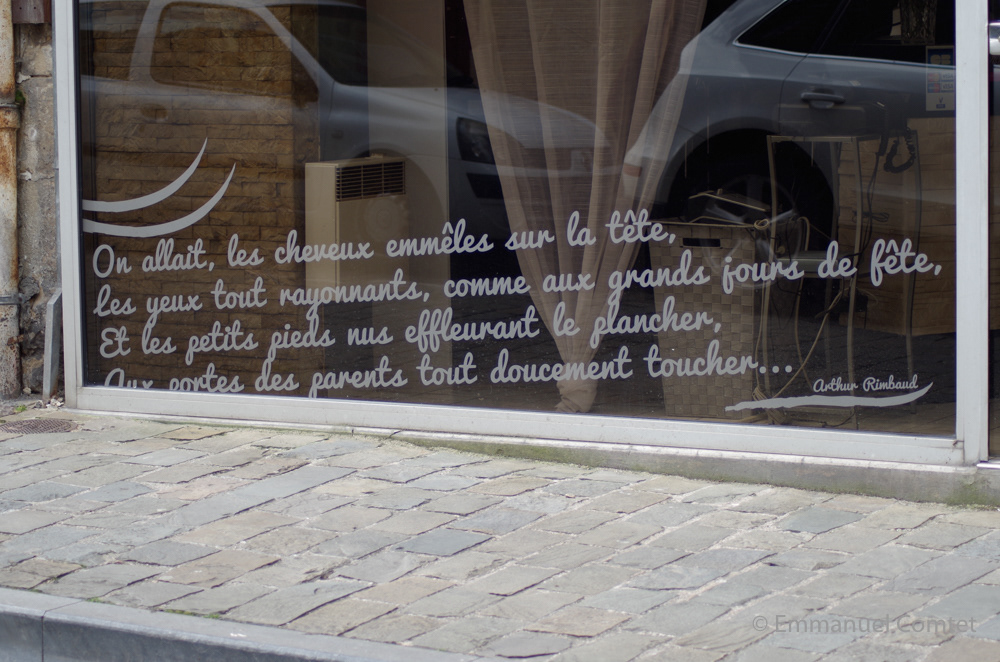 On allait, les cheveux emmêles sur la tête,
Les yeux tout rayonnants, comme aux grands jours de fête,
Et les petits pieds nus effleurant le plancher,
Aux portes des parents tout doucement toucher...
Arthur Rimbaud
© Emmanuel Comtet